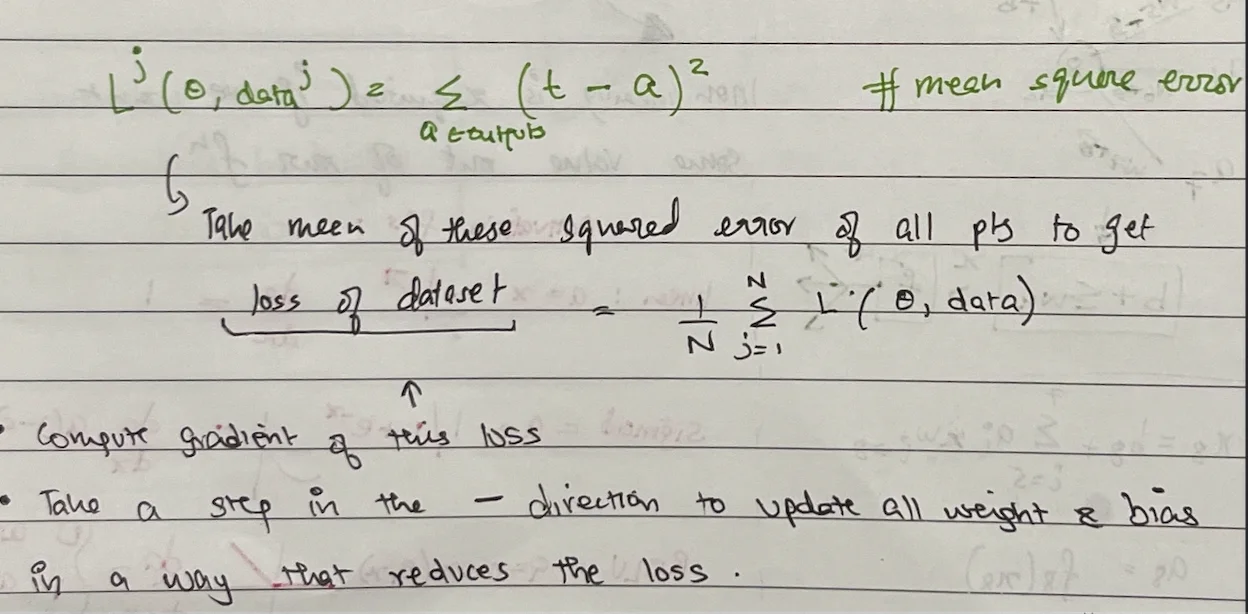 L^j (θ, data^j) = Σ (t - a)² # mean square error
a ∈ outputs
↳ Take mean of these squared error of all pts to get
loss of dataset = 1/N Σ_{j=1}^{N} L^j (θ, data)
↑
• Compute gradient of this loss
• Take a step in the - direction to update all weight & bias
in a way that reduces the loss.